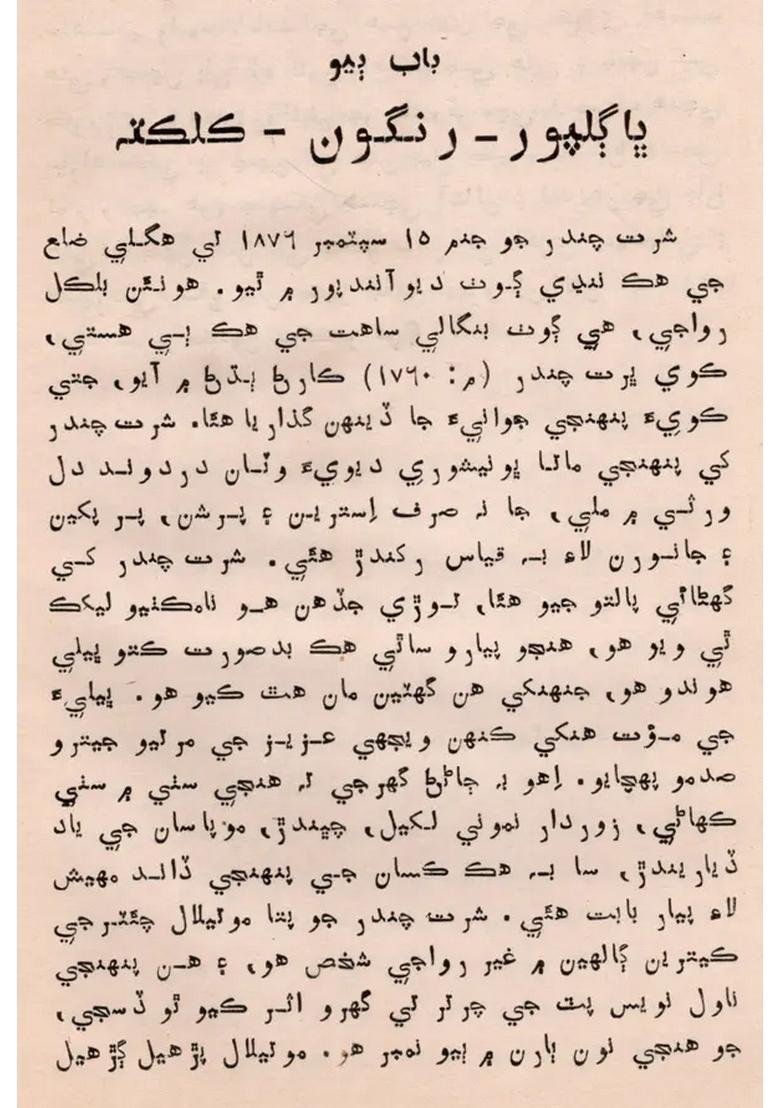 باب ٻيو
ڀاڳلپور - رنگون - ڪلڪتہ
شرت چندر جو جنم ١٥ سپٽمبر ١٨٧٦ تي هگلي ضلع
جي هڪ ننڍي ڳوٺ ديو آنندپور ۾ ٿيو. هونئن بلڪل
رواجي، هي ڳوٺ بنگالي ساهت جي هڪ ٻي هستي،
ڪوي ڀرت چندر (م: ١٧٦٠) ڪارڻ ٻڌڻ ۾ آيو، جتي
ڪويءَ پنهنجي جوانيءَ جا ڏينهن گذاريا هئا. شرت چندر
کي پنهنجي ماتا ڀونيشوري ديويءَ وٽان دردوند دل
ورثي ۾ ملي، جا نہ صرف اِسترين ۽ پرشن، پر پکين
۽ جانورن لاءِ بہ قياس رکندڙ هئي. شرت چندر کي
گهڻائي پالتو جيو هئا، توڙي جڏهن هو نامڪٺيو ليکڪ
ٿي ويو هو، هنجو پيارو ساٿي هڪ بدصورت ڪتو ڀيلي
هوندو هو، جنهنکي هن گهٽين مان هٿ ڪيو هو. ڀيليءَ
جي موت هنکي ڪنهن ويجهي عزيز جي مرتيو جيترو
صدمو پهچايو. اِهو بہ ڄاڻڻ گهرجي تہ هنجي سٺي ۾ سٺي
ڪهاڻي، زوردار نموني لکيل، چيندڙ، موپاسان جي ياد
ڏياريندڙ، سا بہ هڪ ڪسان جي پنهنجي ڏاند مهيش
لاءِ پيار بابت هئي. شرت چندر جو پتا موتيلال چئٽرجي
ڪيترين ڳالهين ۾ غير رواجي شخص هو، ۽ هن پنهنجي
ناول نويس پٽ جي چرتر تي گهرو اثر ڪيو ٿو ڏسجي،
جو هنجي نون ٻارن ۾ ٻيو نمبر هو. موتيلال پڙهيل ڳڙهيل